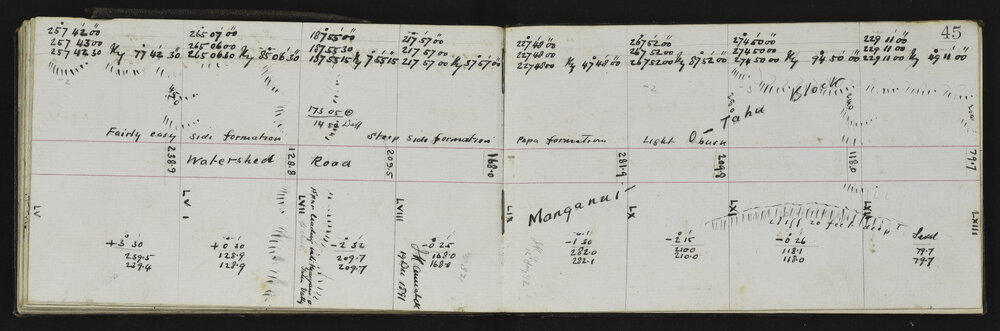 45
257 42 00
257 43 00
257 42 30 Ky 77 42 30
265 07 00
265 06 00
265 06 30 Ky 85 06 30
187 55 00
187 55 30
187 55 15 Ky 7 55 15
217 57 00
217 57 00
217 57 00 Ky 37 57 00
227 48 00
227 48 00
227 48 00 Ky 47 48 00
267 52 00
267 52 00
267 52 00 Ky 87 52 00
274 50 00
274 50 00
274 50 00 Ky 94 50 00
229 11 00
229 11 00
229 11 00 Ky 49 11 00
-2
-2
-3
Block
Tahu
173 05
14 50
Fairly easy Side formation
Steep Side formation
Papa formation
Light
238.9
Watershed
128.8
Road
209.5
168.0
281.9
209.8
118.0
79.7
LV
LVI
LVII
LVIII
LIX
Manganui
LX
LXI
LXII
LXIII
Cliff 20 feet deep
Spur leading into
+3 30
239.5
239.4
+0 20
128.9
128.9
-2 32
209.7
209.7
-0 25
168.0
168.0
19 Dec 1891
-1 30
282.0
282.1
-2 15
210.0
210.0
-0 26
118.1
118.0
Level
79.7
79.7